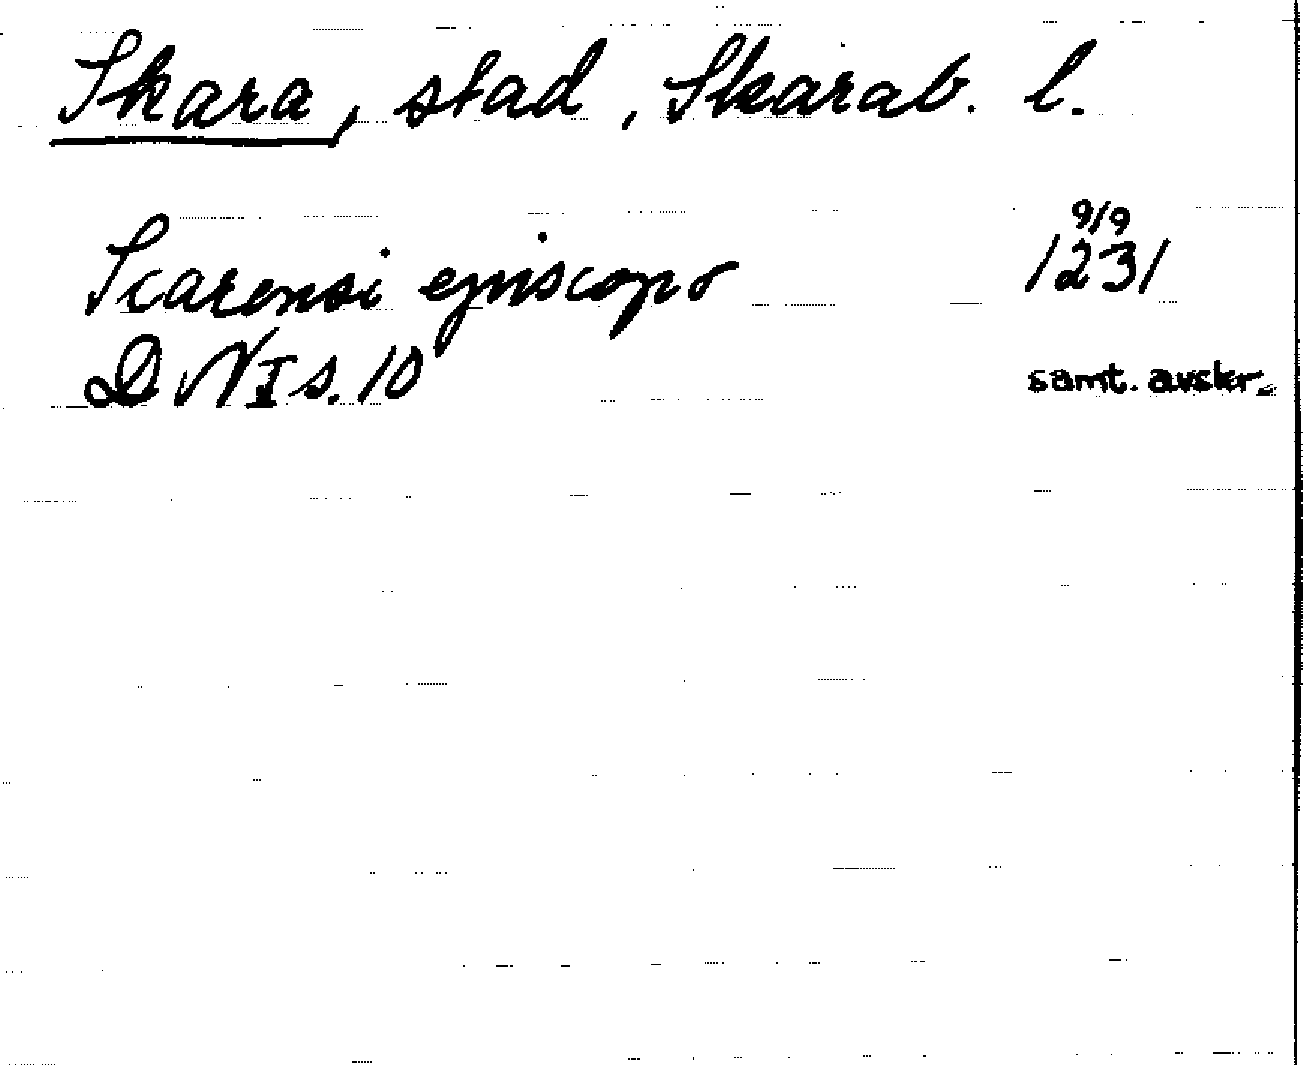 Skara, stad, Skarab. l.
Scarensi episcopo 9/9 1231
DN I s. 10 samt. avskr.